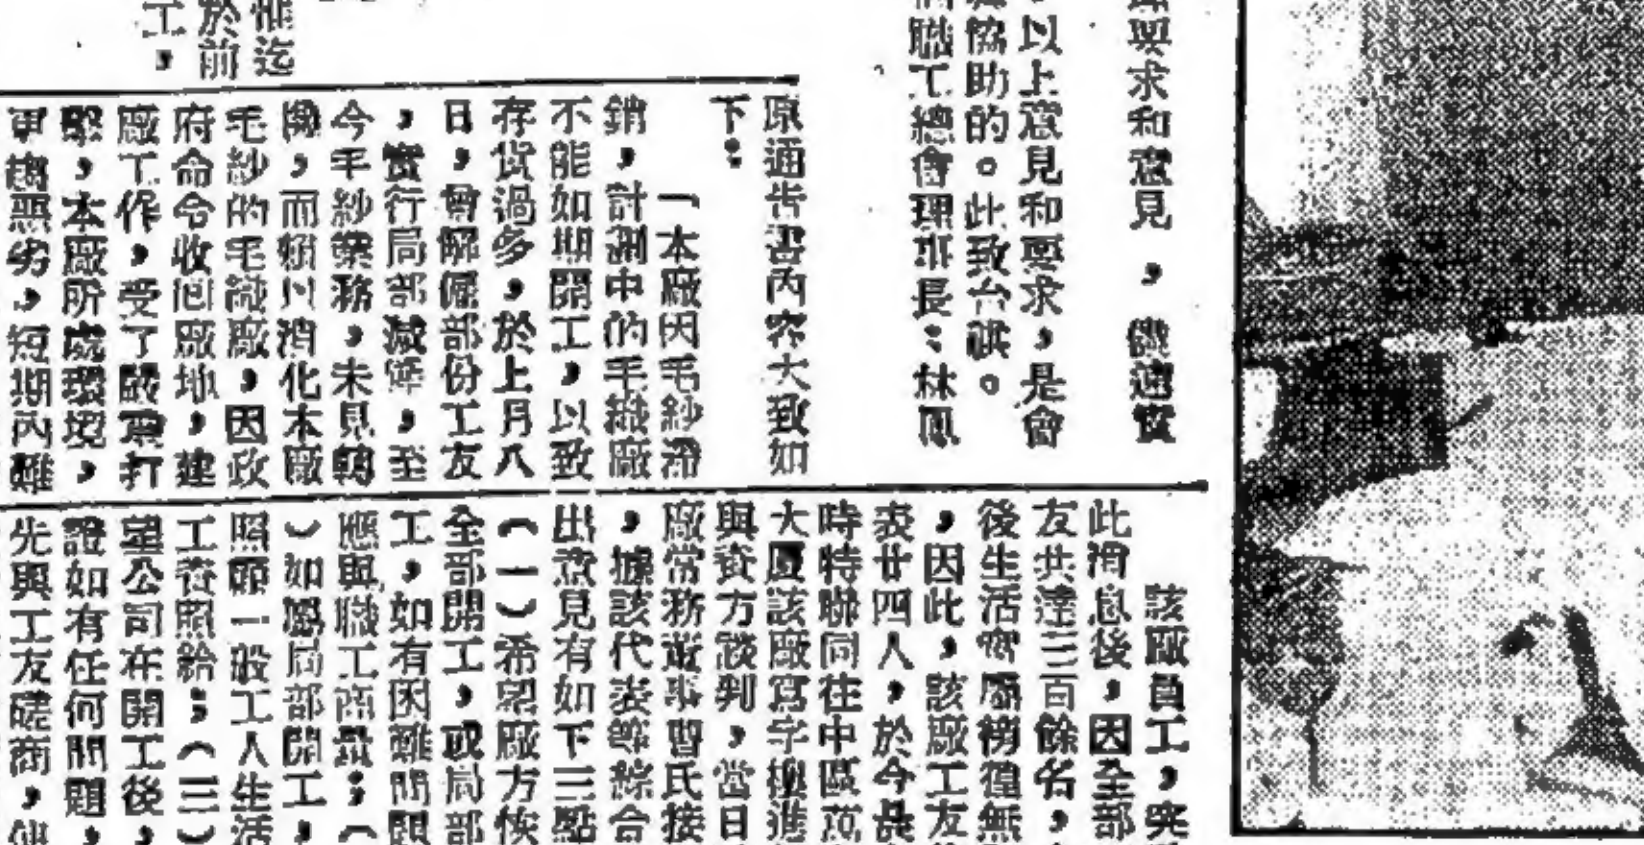 求和意見，
，以上意見和要求，是會
協助的。此致台祺。
職工總會理事長：林鳳
惟迄
於前
工，
原通告書內容大致如
下：
「本廠因毛紗滯
銷，計劃中的毛織廠
不能如期開工，以致
存貨過多，於上月八
日，曾解僱部份工友
，實行局部減停，至
今毛紗業務，未見轉
機，而賴以消化本廠
毛紗的毛織廠，因政
府命令收回廠地，建
廠工作，受了嚴重打
擊，本廠所處環境，
更趨惡劣，短期內難
該廠員工，突
此消息後，因全部
友共達三百餘名，
後生活實屬徬徨無
，因此，該廠工友
表廿四人，於今晨
時特聯同往中區
大廈該廠寫字樓進
與資方談判，當日
廠常務董事曾氏接
，據該代表等綜合
出意見有如下三點
（一）希望廠方恢
全部開工，或局部
工，如有困難問題
應與職工商量；（
）如屬局部開工，
照顧一般工人生活
工資照給；（三）
望公司在開工後，
證如有任何問題，
先與工友磋商，